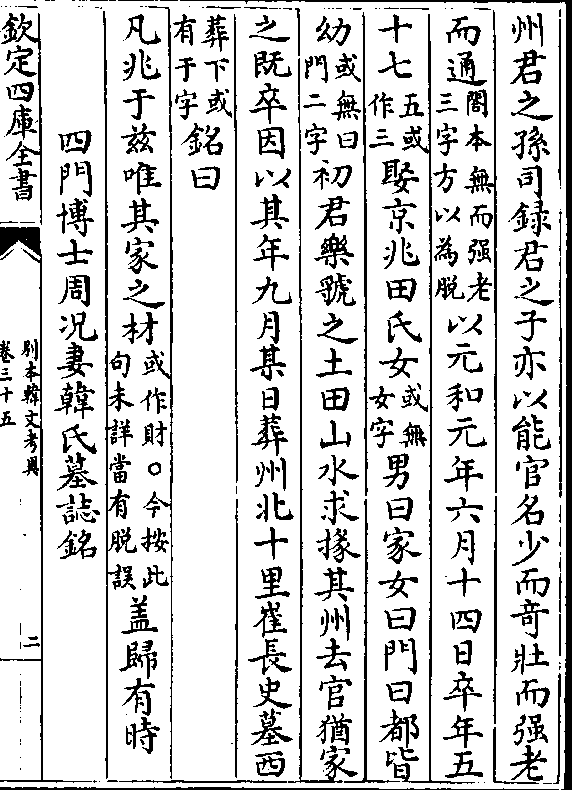 州君之孫司録君之子亦以能官名少而竒壯而强老
而通閣本無而强老三字方以為脱以元和元年六月十四日卒年五
十七五或作三娶京兆田氏女或無女字男曰家女曰門曰都皆
幼或無曰門二字初君樂虢之土田山水求掾其州去官猶家
之既卒因以其年九月某日葬州北十里崔長史墓西
葬下或有于字銘曰
凡兆于兹唯其家之材或作財○今按此句未詳當有脱誤盖歸有時
四門博士周况妻韓氏墓誌銘
欽定四庫全書
别本韓文考異
卷三十五
二